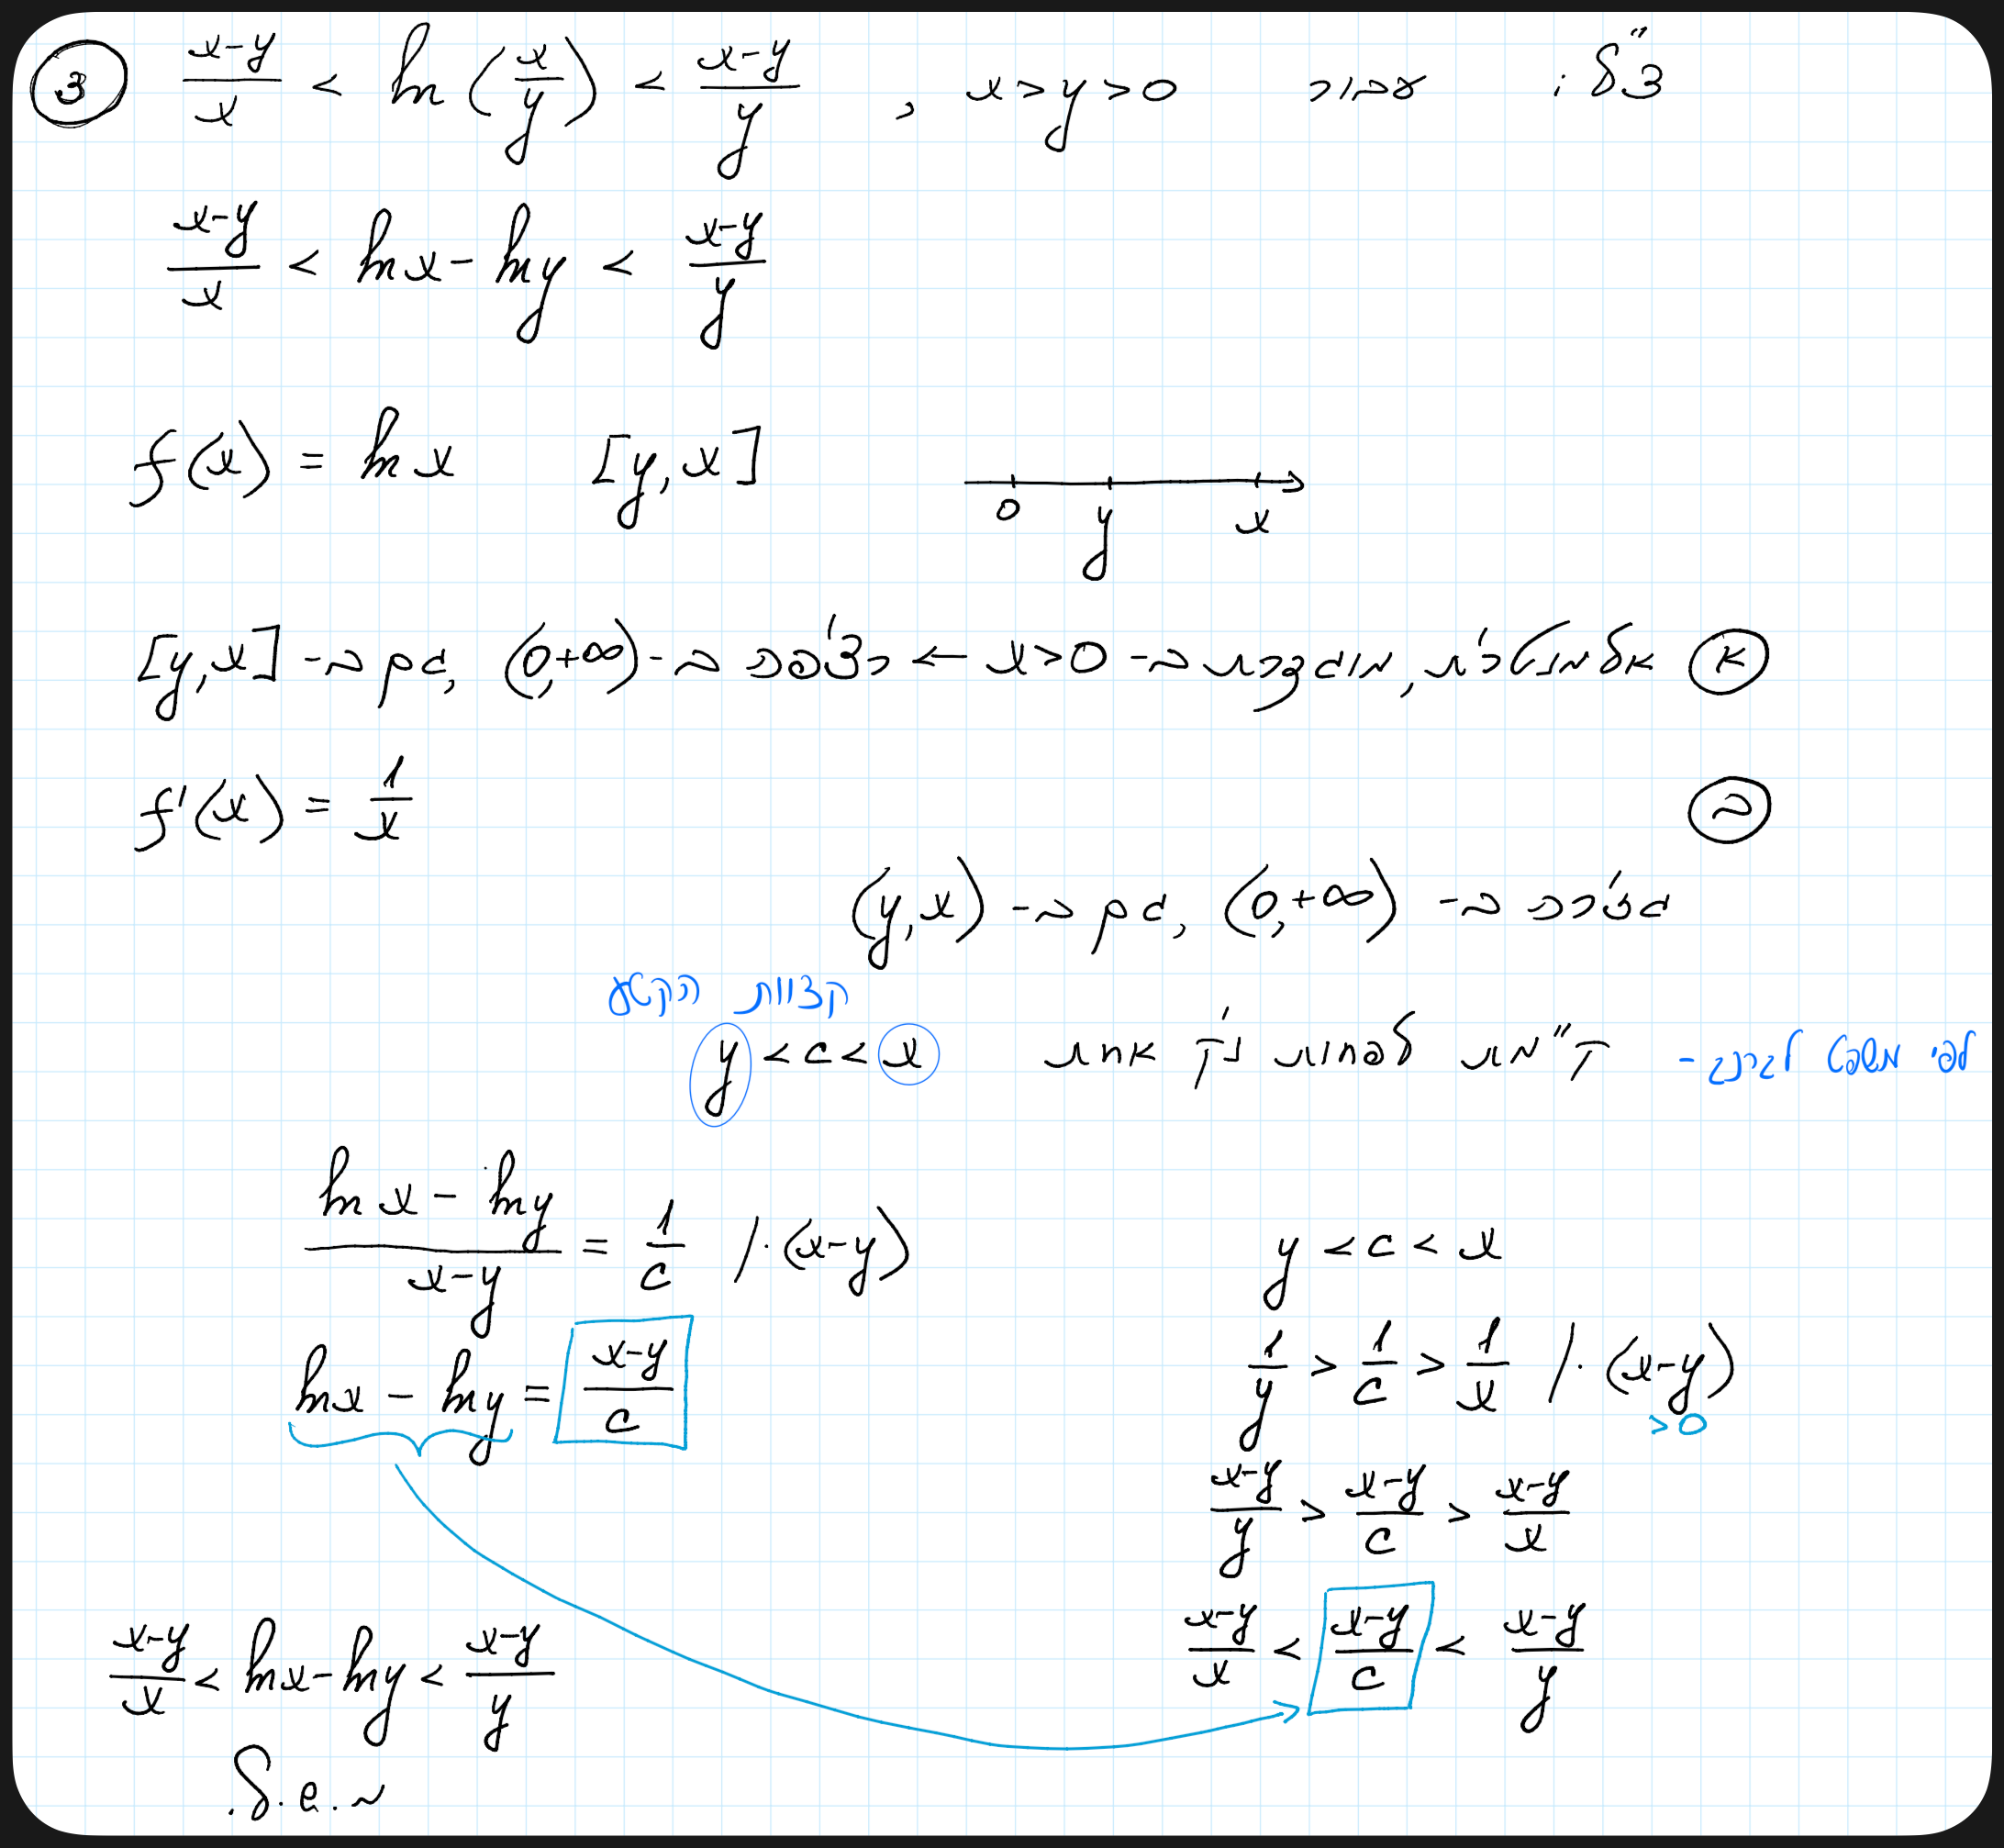 ③ (x-y)/x < ln(x/y) < (x-y)/y , x>y>0 עבור צ"ל:
(x-y)/x < lnx - lny < (x-y)/y
f(x) = ln x [y,x]
0 y x
א אלמנטרית, מוגדרת ב- x>0 ← רציפה ב- (0,+∞), גם ב- [y,x]
ב f'(x) = 1/x
גזירה ב- (0,+∞), גם ב- (y,x)
קצוות הקטע
לפי משפט לגרנג'- קיימת לפחות נק' אחת y < c < x
(ln x - ln y)/(x-y) = 1/c /·(x-y)
lnx - lny = (x-y)/c
y < c < x
1/y > 1/c > 1/x /·(x-y)
>0
(x-y)/y > (x-y)/c > (x-y)/x
(x-y)/x < (x-y)/c < (x-y)/y
(x-y)/x < lnx - lny < (x-y)/y
מ.ש.ל.